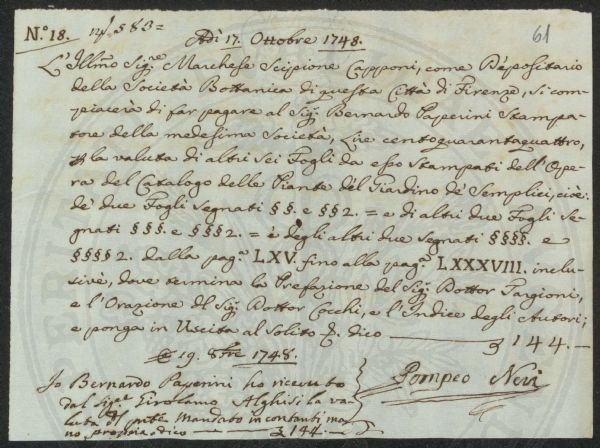 N.º 18.
Adì 17. Ottobre 1748.
61
L'Illmo Sigre Marchese Scipione Capponi, come Depositario
della Società Bottanica di questa Città di Firenze, si com-
piacerà di far pagare al Sigr Bernardo Paperini Stampa-
tore della medesima Società, Lire centoquarantaquattro,
la valuta di altri Sei Fogli da esso Stampati dell'Ope-
ra del Catalogo delle Piante del Giardino de' Semplici, cioè:
de' due Fogli Segnati §§. e §§2. = e di altri due Fogli Se-
gnati §§§. e §§§2. = e degli altri due Segnati §§§§. e
§§§§2. dalla paga LXV. fino alla paga LXXXVIII. inclu-
sivè, dove termina la Prefazione del Sigr Dottor Targioni,
e l'Orazione del Sigr Dottor Cocchi, e l'Indice degli Autori;
e ponga in Uscita al Solito dico 144.
19. 8bre 1748.
Pompeo Neri
Io Bernardo Paperini ho ricevuto
dal Sigre Girolamo Alghisi la va-
luta del Mandato in contanti ma-
no propria, dico 144.